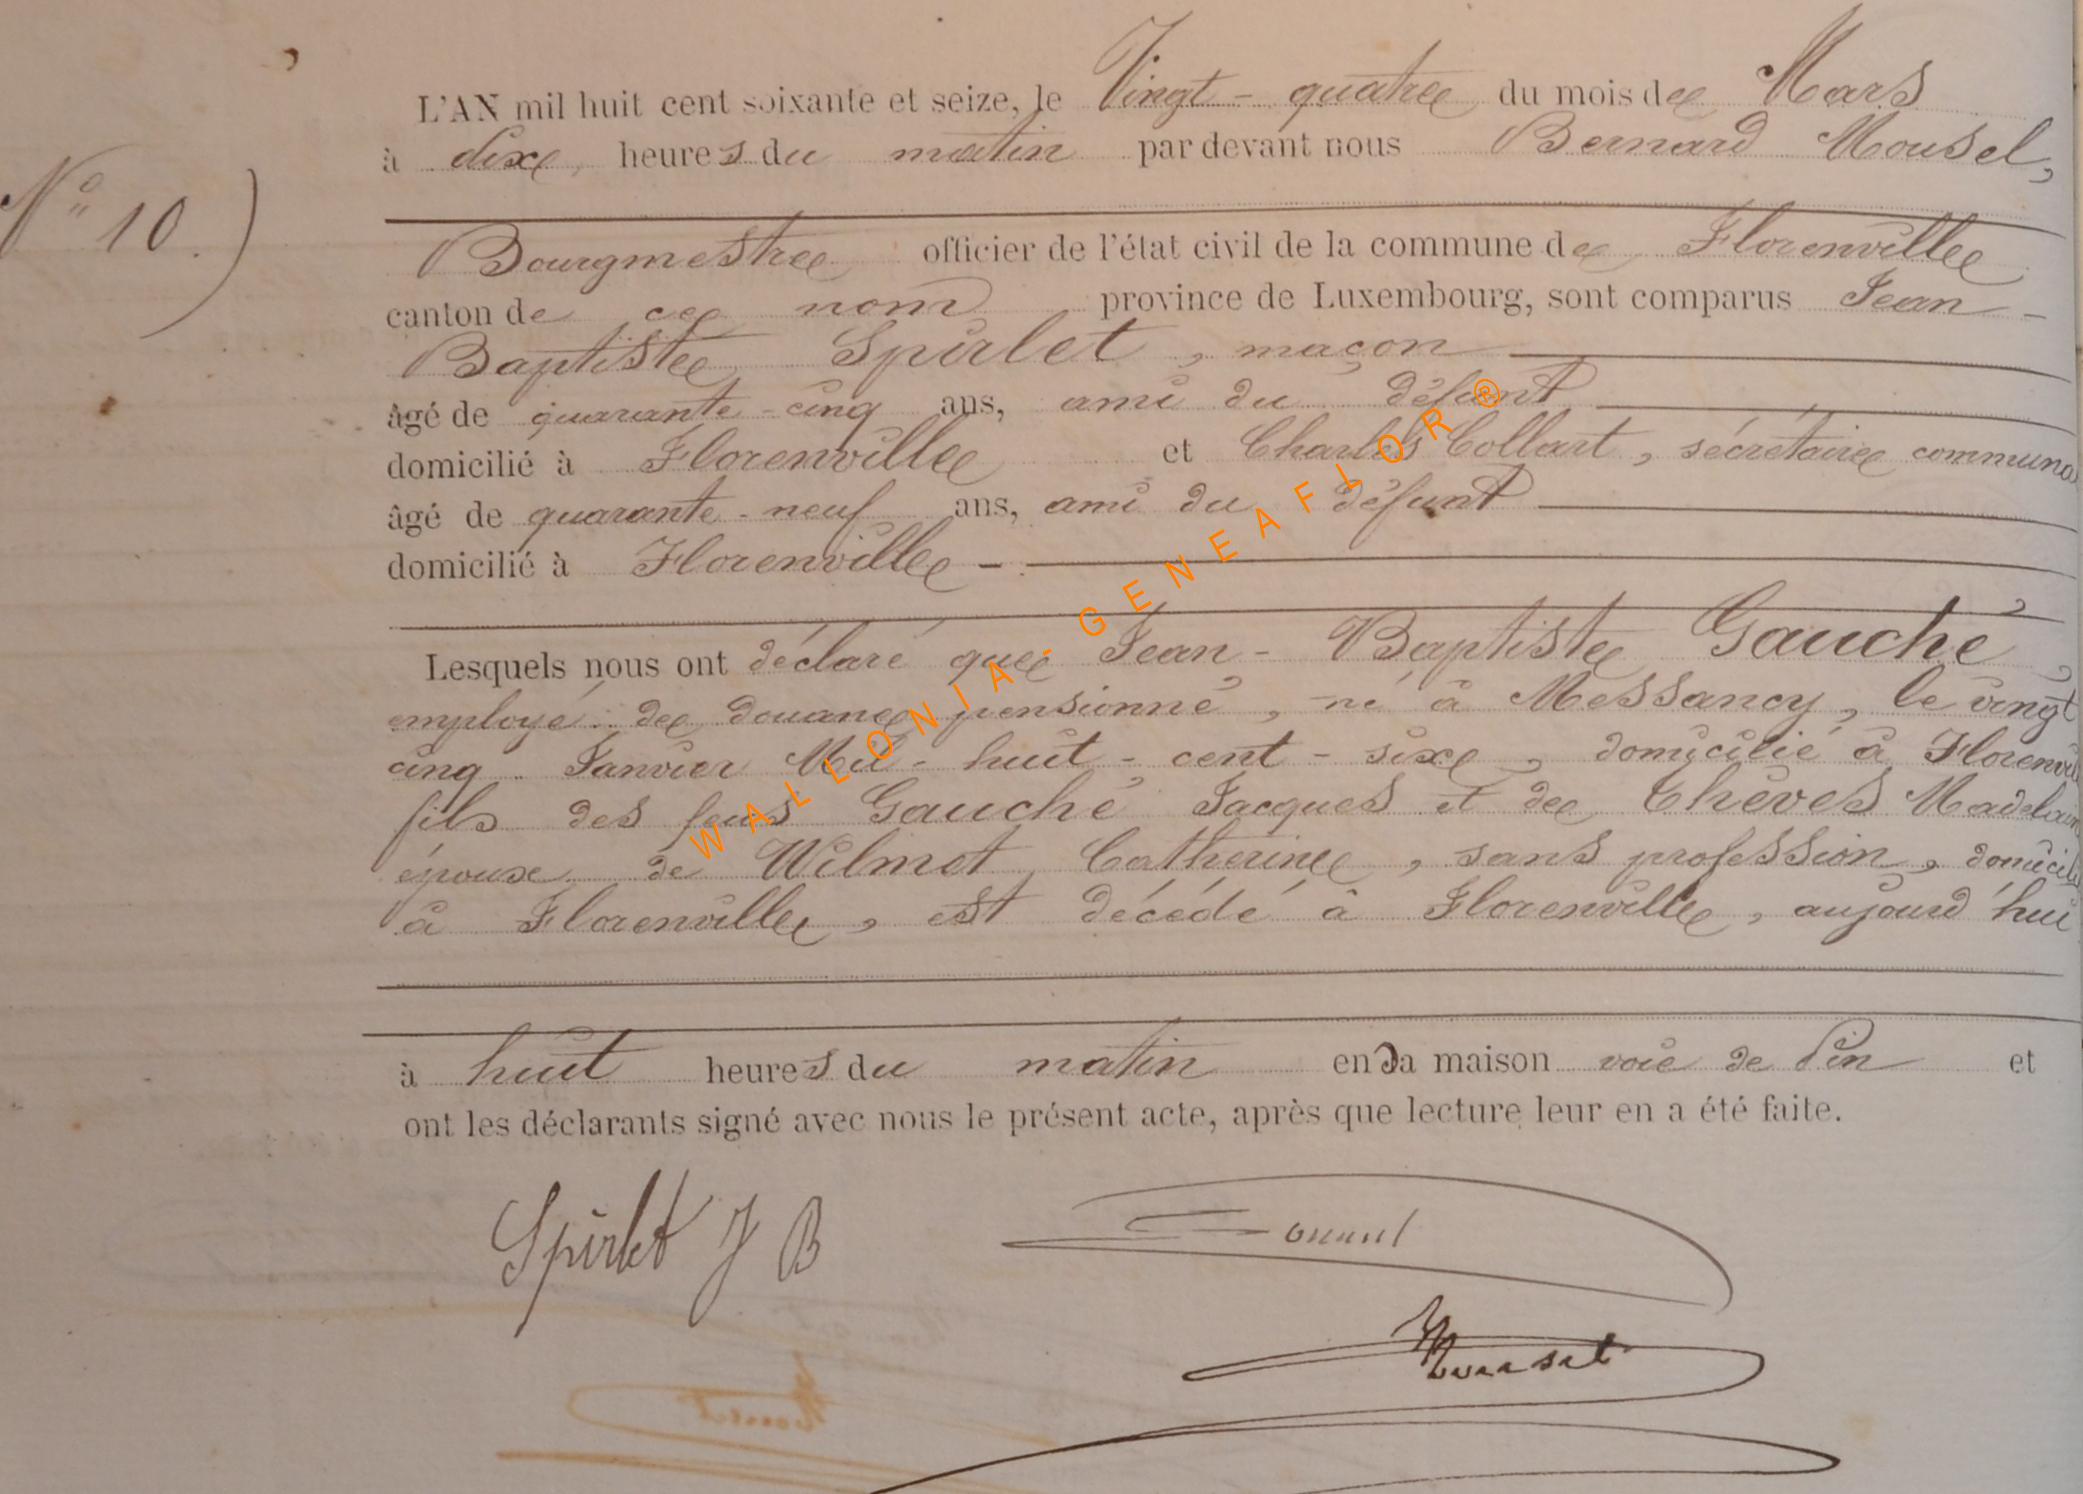 L'AN mil huit cent soixante et seize, le Vingt-quatre du mois de Mars
à dix heures du matin par devant nous Bernard Mousel,
N° 10.)
Bourgmestre officier de l'état civil de la commune de Florenville
canton de ce nom province de Luxembourg, sont comparus Jean-
Baptiste Spirlet, maçon
âgé de quarante-cinq ans, ami du défunt
domicilié à Florenville et Charles Collart, sécrétaire communa
âgé de quarante-neuf ans, ami du défunt
domicilié à Florenville -
Lesquels nous ont déclaré que Jean-Baptiste Gauché,
employé de douane pensionné, né à Messancy, le vingt
cinq Janvier Mil-huit-cent-six, domicilié à Florenvill
fils des feus Gauché Jacques et de Thèves Madelain
époux de Wilmet Catherine, sans profession, domicili
à Florenville, est décédé à Florenville, aujourd'hui
à huit heures du matin en sa maison voie de Pin et
ont les déclarants signé avec nous le présent acte, après que lecture leur en a été faite.
Spirlet J B
Mousel
WALLONIA-GENEAFLOR ®